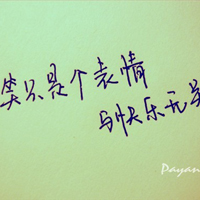 笑只是个表情
与快乐无关
Payan